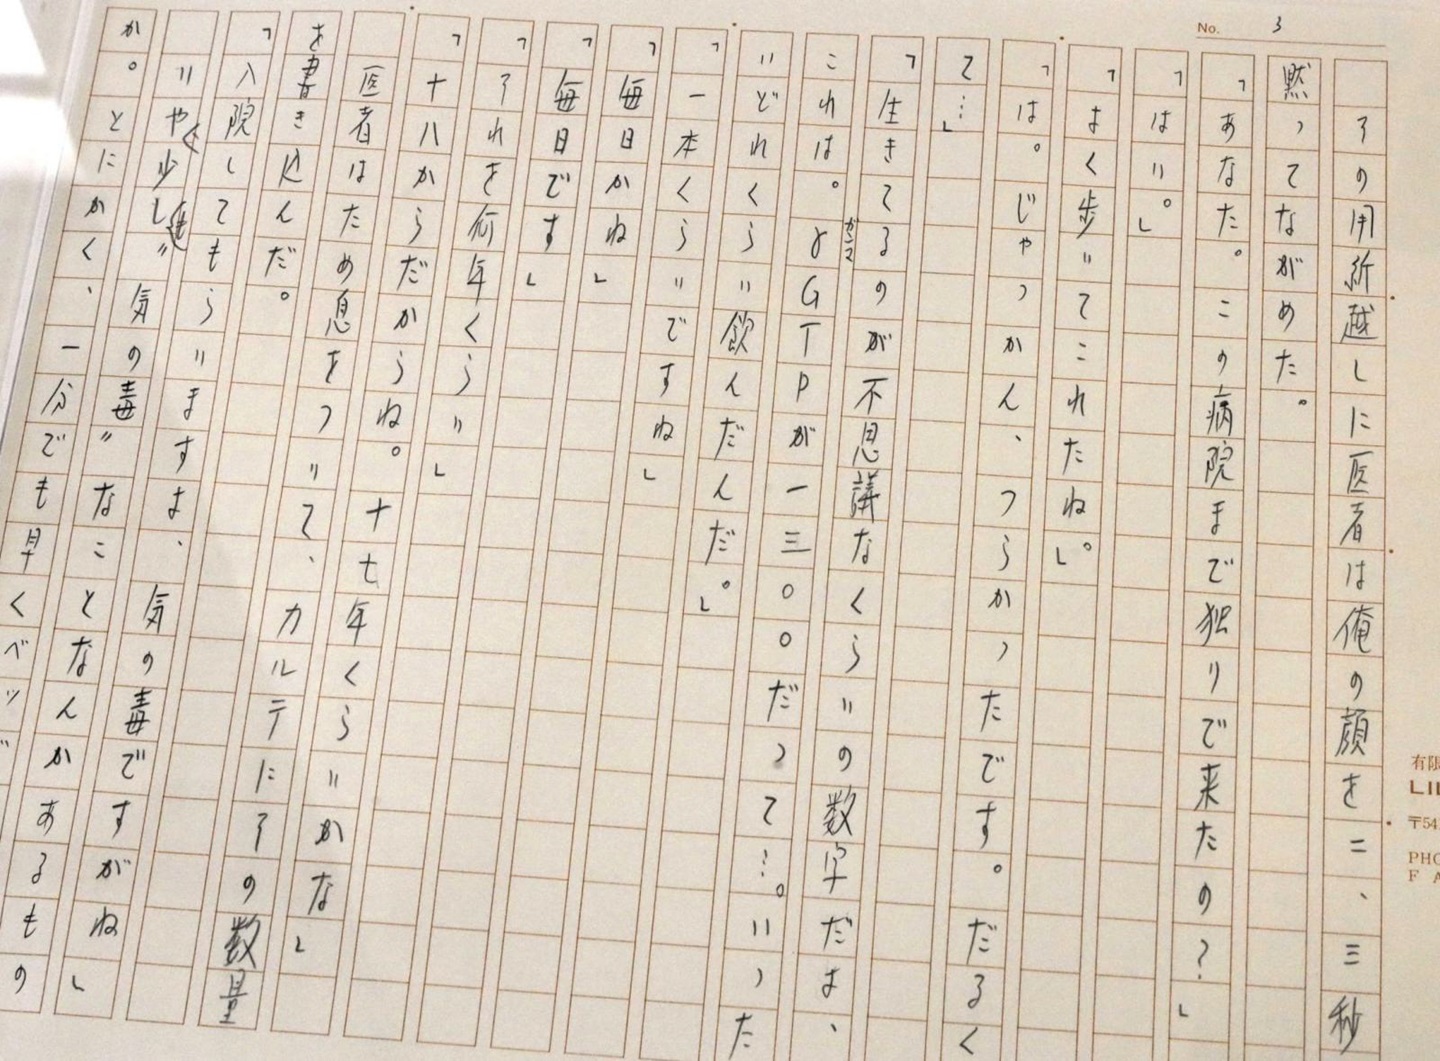 No. 3
その用紙越しに医者は俺の顔を二、三秒
黙ってながめた。
「あなた。この病院まで独りで来たの?」
「はい。」
「よく歩いてこれたね。」
「は。じゃっかん、つらかったです。だるく
て…」
「生きてるのが不思議なくらいの数字だよ、
ガンマ
これは。γGTPが一三〇〇だって…。いった
いどれくらい飲んだんだ。」
「一本くらいですね」
「毎日かね」
「毎日です」
「それを何年くらい」
「十八からだからね。十七年くらいかな」
医者はため息をついて、カルテにその数量
を書き込んだ。
「入院してもらいますよ、気の毒ですがね」
いや少しも"気の毒"なことなんかあるもの
か。とにかく、一分でも早くベッ
有限
〒54
PHO
F A